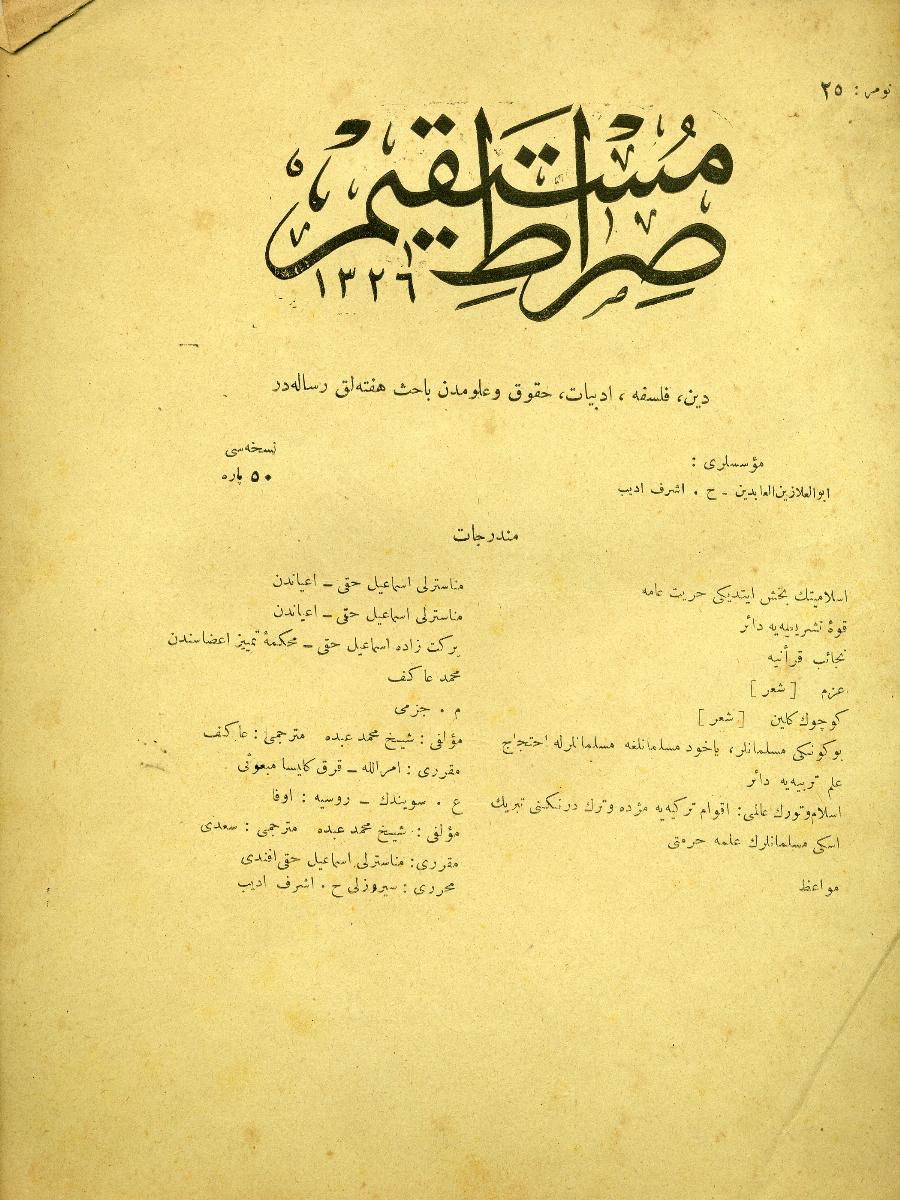 نومرو : ٢٥
صراط مستقيم
١٣٢٦
دين، فلسفه ، ادبيات، حقوق وعلومدن باحث هفته‌لق رساله‌در
مؤسسلری :
ابوالعلازين‌العابدين ـ ح . اشرف اديب
نسخه‌سی
٥٠ پاره
مندرجات
اسلاميتك بخش ايتديكی حريت عامه مناسترلی اسماعيل حقی ـ اعياندن
قوۀ تشريعيه‌يه دائر مناسترلی اسماعيل حقی ـ اعياندن
نجائب قرآنيه بركت زاده اسماعيل حقی ـ محكمۀ تمييز اعضاسندن
عزم [ شعر ] محمد عاكف
كوچوك كلين [ شعر ] م . جزمی
بوكونكی مسلمانلر، ياخود مسلمانلغه مسلمانلرله احتجاج مؤلفی : شيخ محمد عبده مترجمی : عاكف
علم تربيه‌يه دائر مقرری : امرالله ـ قرق كليسا مبعوثی
اسلام‌وتورك عالمی: اقوام تركيه‌يه مژده وترك درنكنی تبريك ع . سويندك ـ روسيه : اوفا
اسكی مسلمانلرك علمه حرمتی مؤلفی : شيخ محمد عبده مترجمی : سعدی
مواعظ مقرری: مناسترلی اسماعيل حقی افندی
محرری : سيروزلی ح . اشرف اديب